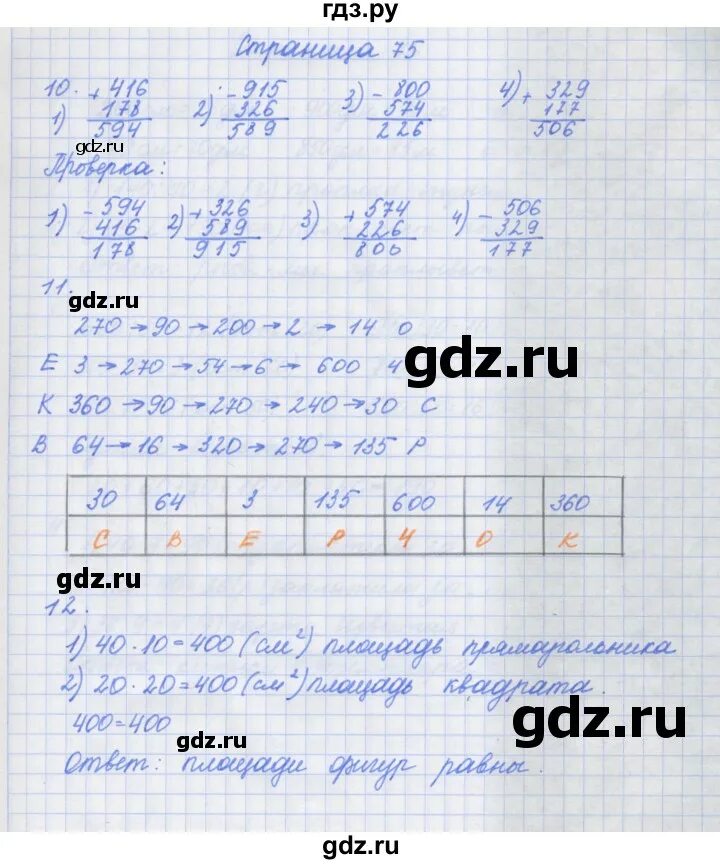 гдз.ру
Страница 75
10.
1) + 416 2) - 915 3) - 800 4) + 329
178 326 574 177
594 589 226 506
gdz.ru
Проверка:
1) - 594 2) + 326 3) + 574 4) - 506
416 589 226 329
178 915 800 177
11.
gdz.ru
270 → 90 → 200 → 2 → 14 О
Е 3 → 270 → 54 → 6 → 600 Ч
gdz.ru
К 360 → 90 → 270 → 240 → 30 С
В 64 → 16 → 320 → 270 → 135 Р
30 64 3 135 600 14 360
С В Е Р Ч О К
gdz.ru
12.
1) 40 · 10 = 400 (см²) площадь прямаугольника
2) 20 · 20 = 400 (см²) площадь квадрата.
400 = 400
gdz.ru
gdz.ru
Ответ: площади фигур равны.
gdz.ru